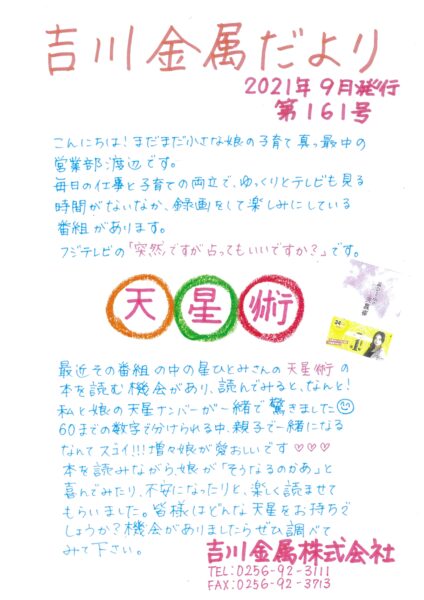 吉川金属だより
2021年9月発行
第161号
こんにちは！まだまだ小さな娘の子育て真っ最中の
営業部渡辺です。
毎日の仕事と子育ての両立で、ゆっくりとテレビも見る
時間がないなか、録画をして楽しみにしている
番組があります。
フジテレビの「突然ですが占ってもいいですか？」です。
天星術
最近その番組の中の星ひとみさんの天星術の
本を読む機会があり、読んでみると、なんと！
私と娘の天星ナンバーが一緒で驚きました
60までの数字で分けられる中、親子で一緒になる
なんてスゴイ!!!増々娘が愛おしいです♡♡♡
本を読みながら娘が「そうなるのかあ」と
喜んでみたり、不安になったりと、楽しく読ませて
もらいました。皆様はどんな天星をお持ちで
しょうか？機会がありましたらぜひ調べて
みて下さい。
吉川金属株式会社
TEL:0256-92-3111
FAX:0256-92-3713